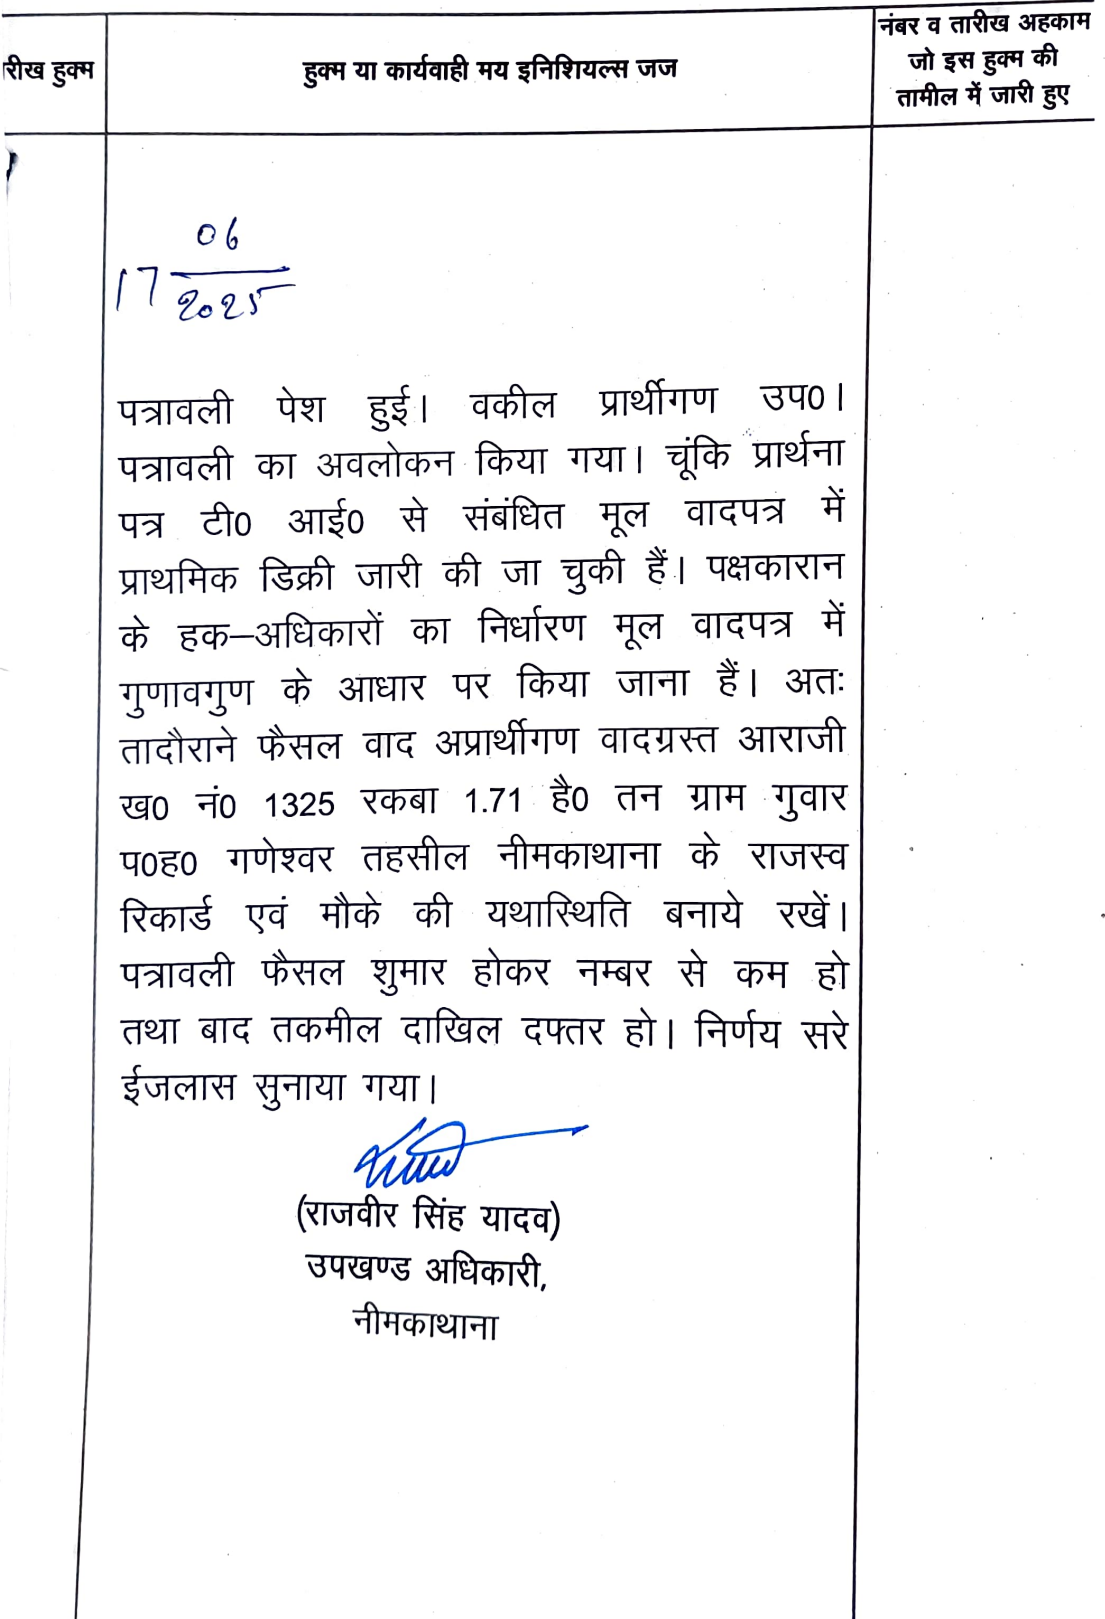 रीख हुक्म
हुक्म या कार्यवाही मय इनिशियल्स जज
नंबर व तारीख अहकाम
जो इस हुक्म की
तामील में जारी हुए
17 06/2025
पत्रावली पेश हुई। वकील प्रार्थीगण उप0।
पत्रावली का अवलोकन किया गया। चूंकि प्रार्थना
पत्र टी0 आई0 से संबंधित मूल वादपत्र में
प्राथमिक डिक्री जारी की जा चुकी हैं। पक्षकारान
के हक–अधिकारों का निर्धारण मूल वादपत्र में
गुणावगुण के आधार पर किया जाना हैं। अतः
तादौराने फैसल वाद अप्रार्थीगण वादग्रस्त आराजी
ख0 नं0 1325 रकबा 1.71 है0 तन ग्राम गुवार
प0ह0 गणेश्वर तहसील नीमकाथाना के राजस्व
रिकार्ड एवं मौके की यथास्थिति बनाये रखें।
पत्रावली फैसल शुमार होकर नम्बर से कम हो
तथा बाद तकमील दाखिल दफ्तर हो। निर्णय सरे
ईजलास सुनाया गया।
(राजवीर सिंह यादव)
उपखण्ड अधिकारी,
नीमकाथाना